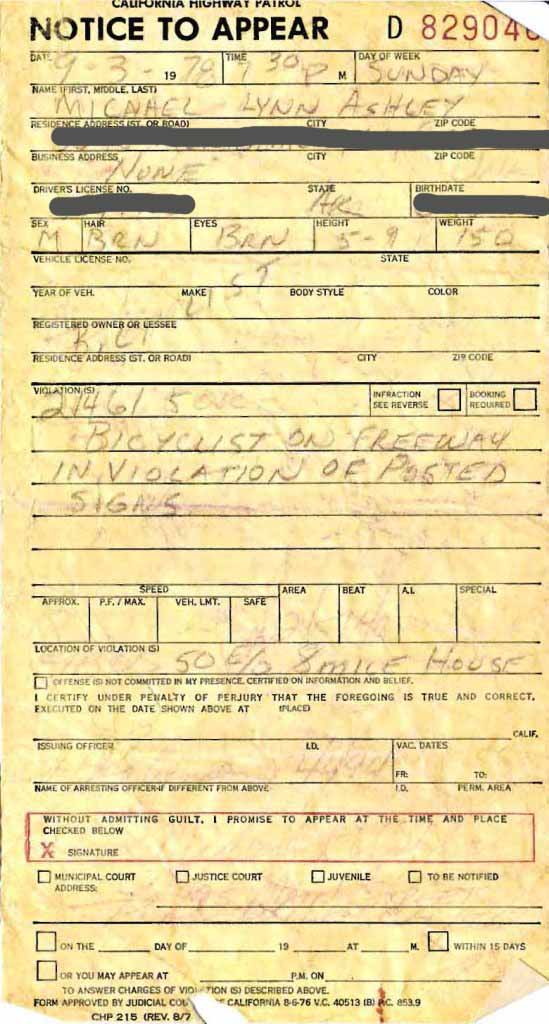 CALIFORNIA HIGHWAY PATROL
NOTICE TO APPEAR D 829046
DATE TIME DAY OF WEEK
9-3-1978 7 30 P M SUNDAY
NAME (FIRST, MIDDLE, LAST)
MICHAEL LYNN ASHLEY
RESIDENCE ADDRESS (ST. OR ROAD) CITY ZIP CODE
BUSINESS ADDRESS CITY ZIP CODE
NONE
DRIVER'S LICENSE NO. STATE BIRTHDATE
SEX HAIR EYES HEIGHT WEIGHT
M BRN BRN 5-9 150
VEHICLE LICENSE NO. STATE
YEAR OF VEH. MAKE BODY STYLE COLOR
REGISTERED OWNER OR LESSEE
RESIDENCE ADDRESS (ST. OR ROAD) CITY ZIP CODE
VIOLATION(S) INFRACTION SEE REVERSE BOOKING REQUIRED
21461 5
BICYCLIST ON FREEWAY
IN VIOLATION OF POSTED
SIGNS
SPEED AREA BEAT A.I. SPECIAL
APPROX. P.F. / MAX. VEH. LMT. SAFE
LOCATION OF VIOLATION (S)
50 E/O 8 MILE HOUSE
OFFENSE (S) NOT COMMITTED IN MY PRESENCE. CERTIFIED ON INFORMATION AND BELIEF.
I CERTIFY UNDER PENALTY OF PERJURY THAT THE FOREGOING IS TRUE AND CORRECT.
EXECUTED ON THE DATE SHOWN ABOVE AT (PLACE)
CALIF.
ISSUING OFFICER I.D. VAC. DATES
FR: TO:
NAME OF ARRESTING OFFICER-IF DIFFERENT FROM ABOVE I.D. PERM. AREA
WITHOUT ADMITTING GUILT, I PROMISE TO APPEAR AT THE TIME AND PLACE
CHECKED BELOW
X SIGNATURE
MUNICIPAL COURT JUSTICE COURT JUVENILE TO BE NOTIFIED
ADDRESS:
ON THE DAY OF 19 AT M. WITHIN 15 DAYS
OR YOU MAY APPEAR AT P.M. ON
TO ANSWER CHARGES OF VIOLATION (S) DESCRIBED ABOVE.
FORM APPROVED BY JUDICIAL COU CALIFORNIA 8-6-76 V.C. 40513 (B) P.C. 853.9
CHP 215 (REV. 8/7